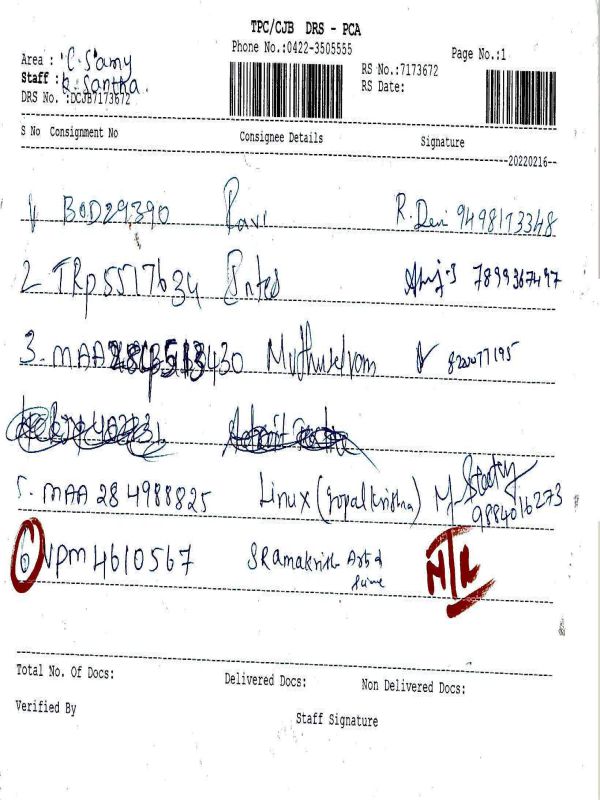 TPC/CJB DRS - PCA
Phone No.:0422-3505555
Page No.:1
Area : C. Samy
Staff : K. Santha.
DRS No. :DCJB7173672
RS No.:7173672
RS Date:
S No Consignment No Consignee Details Signature
20220216--
1 BOD29390 Ravi R. Devi 9498173348
2 TRP5517634 7899367497
3. MAA 430 Muthuselvam 8220077195
5. MAA 284988825 Linux (Gopal Krishna) M. 9884016273
6 VPM4610567 SRamakrish Arts
Total No. Of Docs: Delivered Docs: Non Delivered Docs:
Verified By Staff Signature